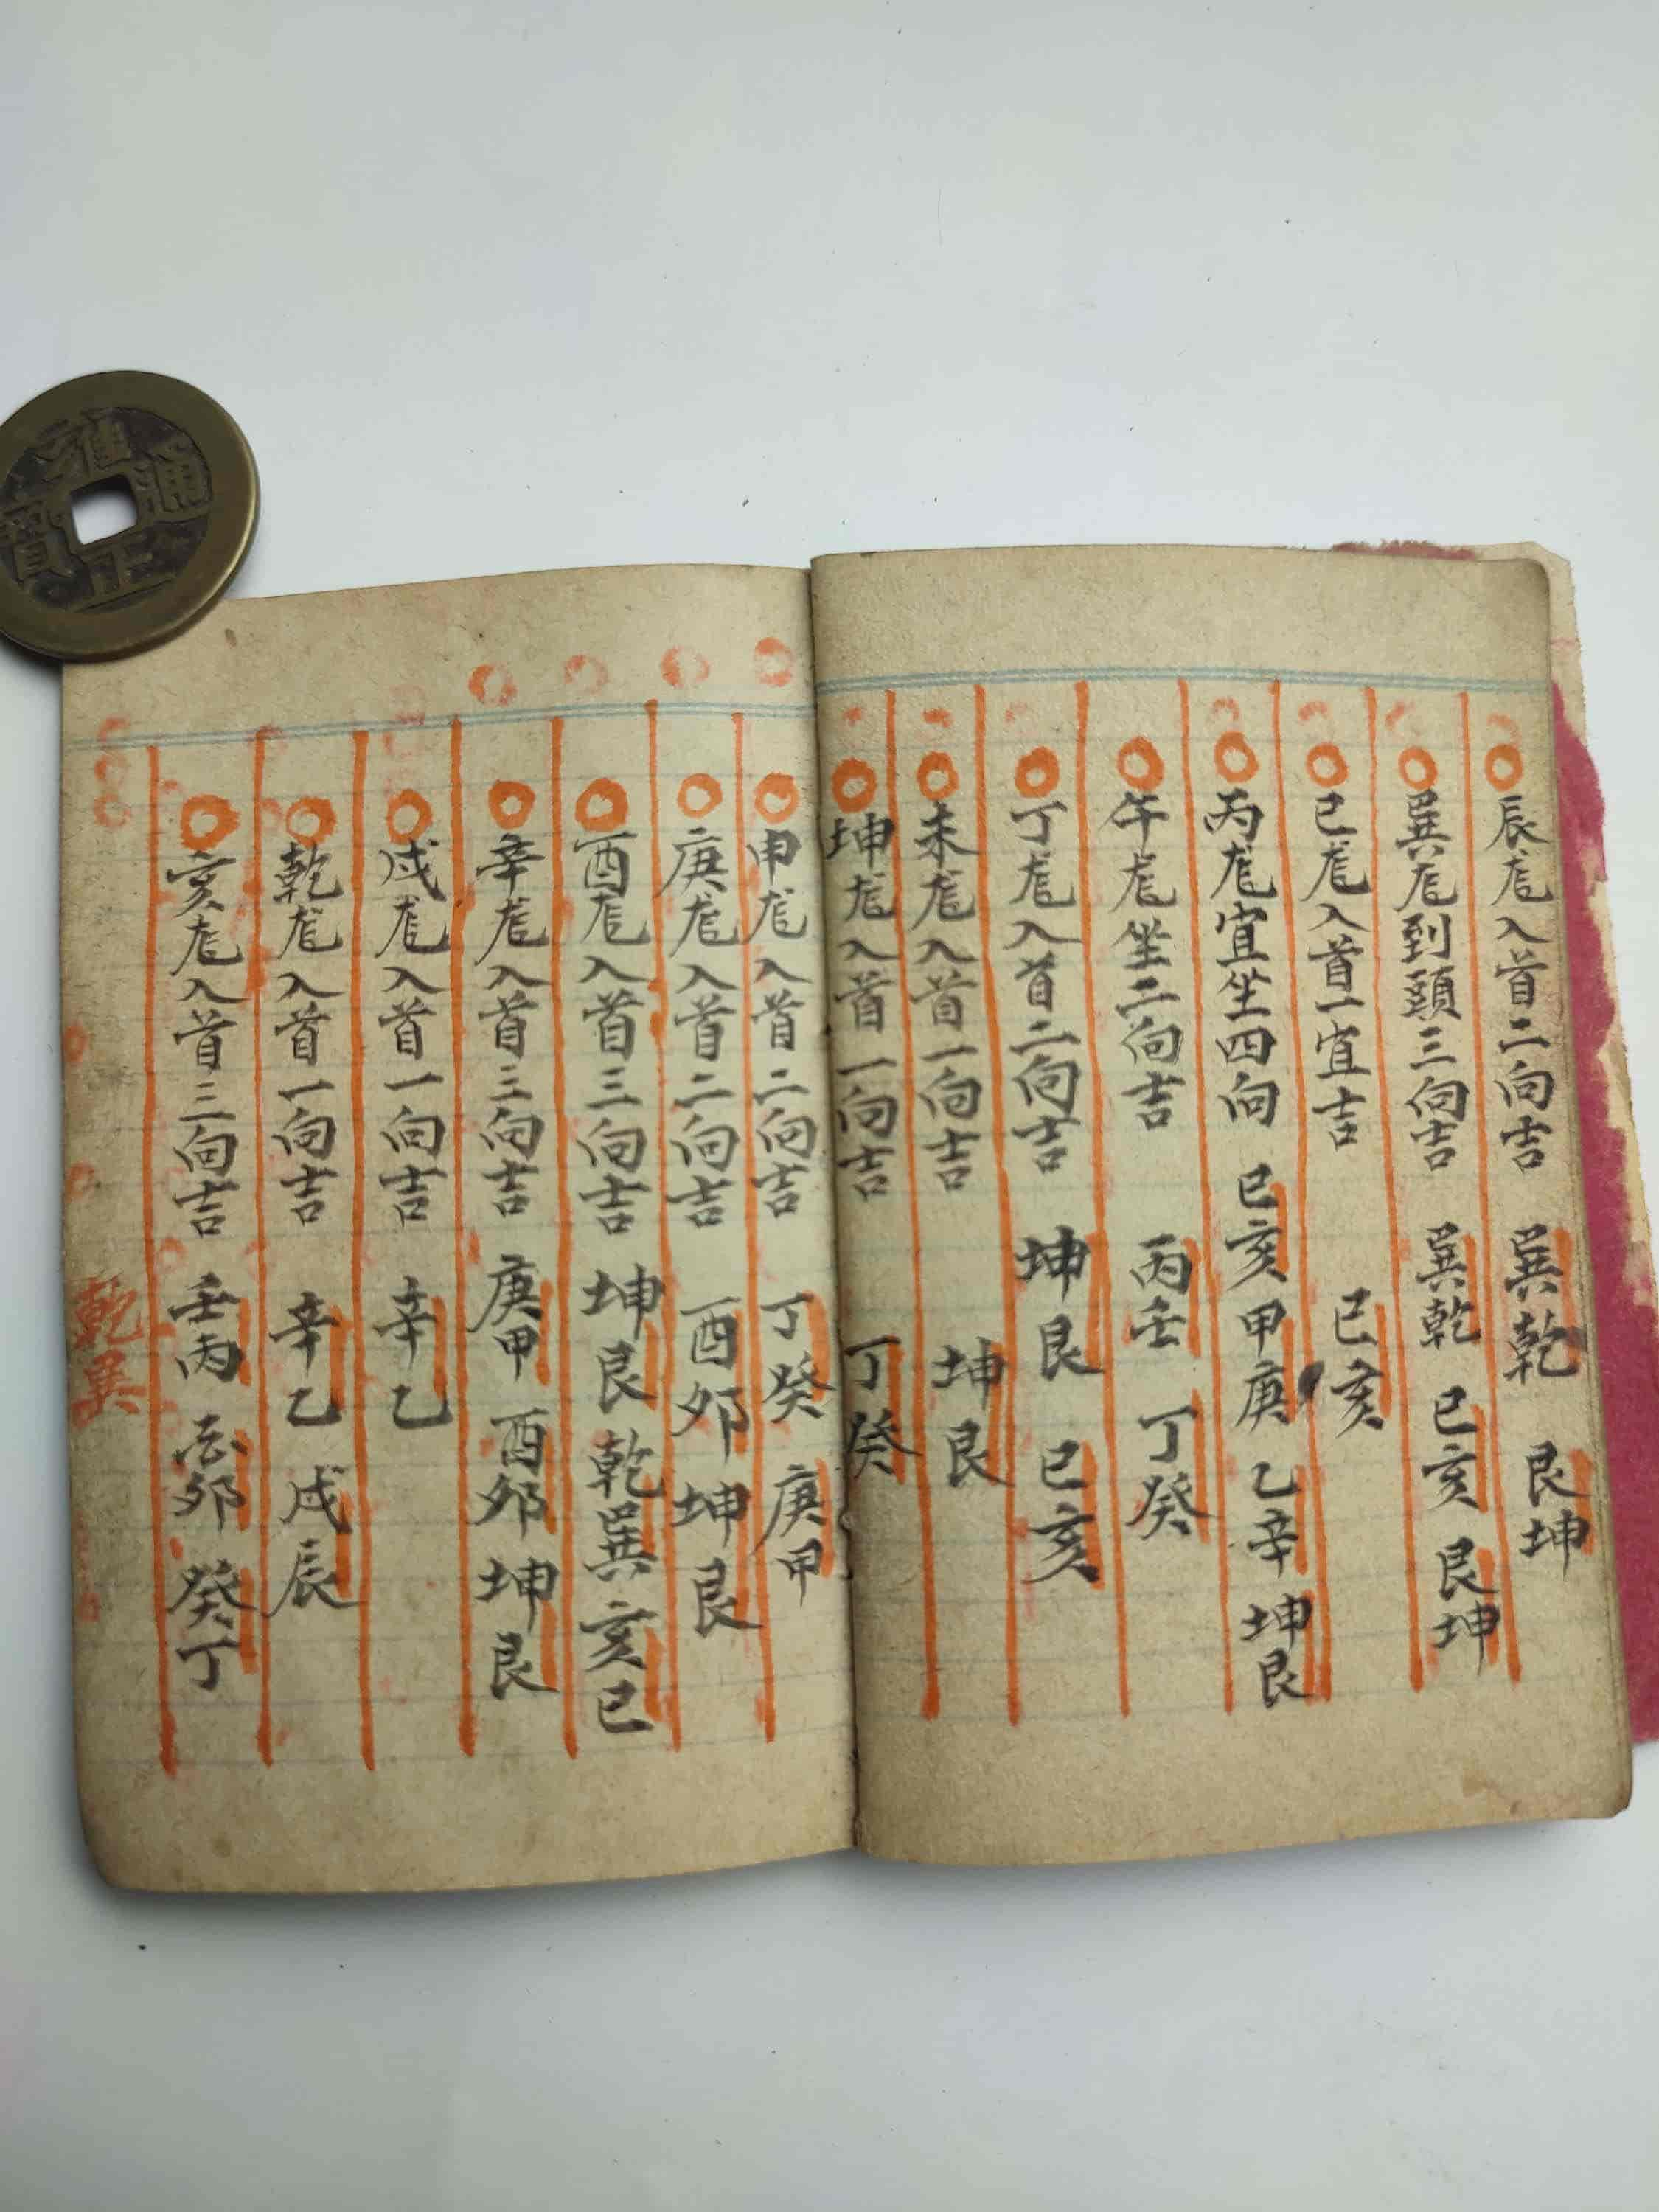 辰尨入首二向吉 巽乾 艮坤
巽尨到頭三向吉 巽乾 巳亥 艮坤
巳尨入首一宜吉 巳亥
丙尨宜坐四向 巳亥 甲庚 乙辛 坤艮
午尨坐二向吉 丙壬 丁癸
丁尨入首二向吉 坤艮 巳亥
未尨入首一向吉 坤艮
坤尨入首一向吉 丁癸
申尨入首二向吉 丁癸 庚甲
庚尨入首二向吉 酉夘 坤艮
酉尨入首三向吉 坤艮 乾巽 亥巳
辛尨入首三向吉 庚甲 酉夘 坤艮
戌尨入首一向吉 辛乙
乾尨入首一向吉 辛乙 戌辰
亥尨入首三向吉 壬丙 夘 癸丁
乾巽
雍正通寶